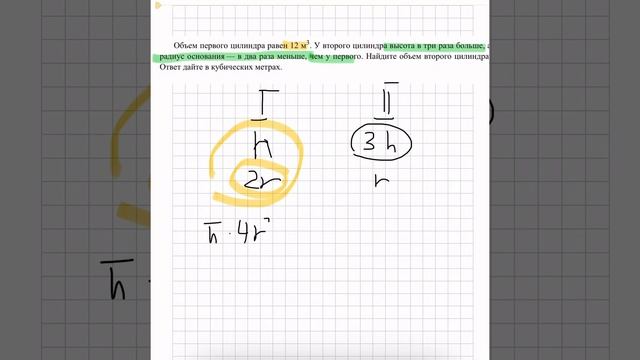 Объем первого цилиндра равен 12 м³. У второго цилиндра высота в три раза больше, а
радиус основания — в два раза меньше, чем у первого. Найдите объем второго цилиндра
Ответ дайте в кубических метрах.
I II
h 3h
2r r